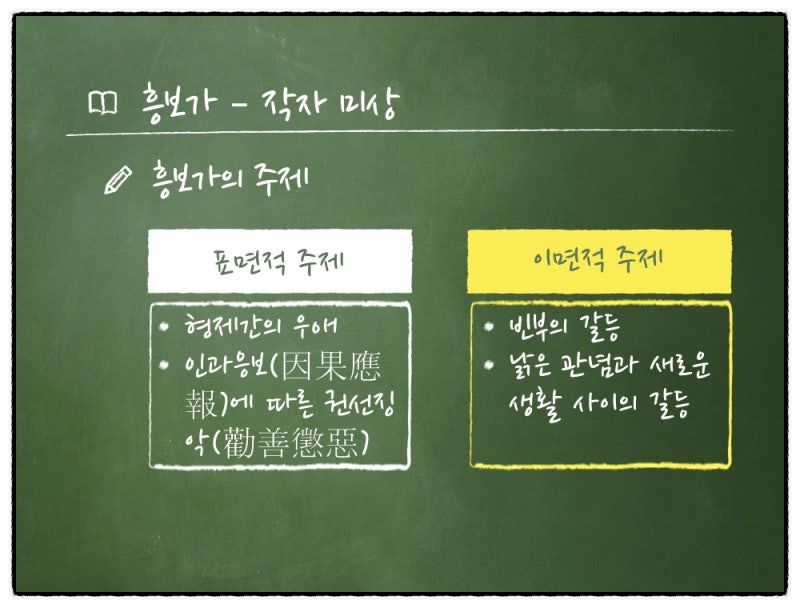 흥보가 - 작자 미상
흥보가의 주제
표면적 주제
• 형제간의 우애
• 인과응보(因果應
報)에 따른 권선징
악(勸善懲惡)
이면적 주제
• 빈부의 갈등
• 낡은 관념과 새로운
생활 사이의 갈등